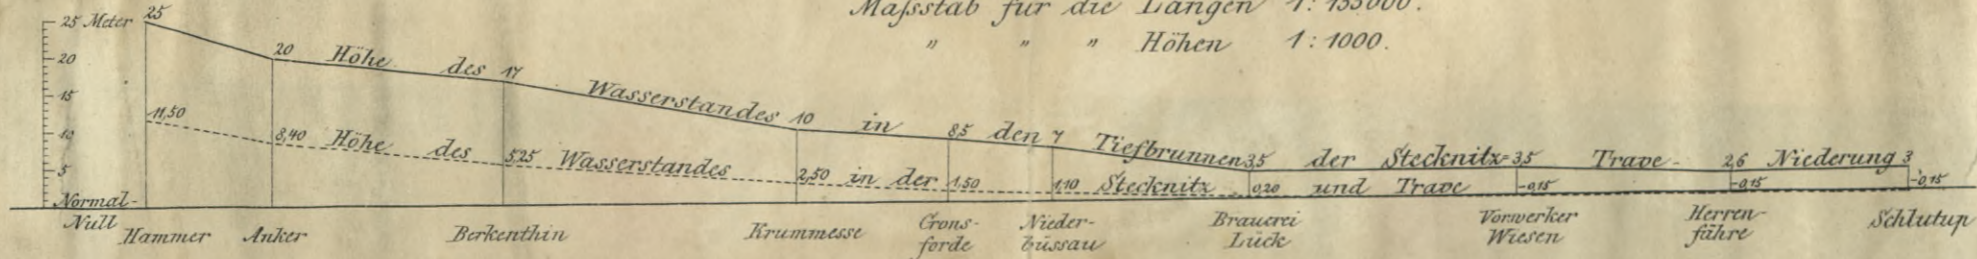 Maßstab für die Längen 1:155000.
" " " Höhen 1:1000.
25 Meter
20
15
10
5
Normal-
Null
25 20 Höhe des 17 Wasserstandes 10 in 8,5 den 7 Tiefbrunnen 3,5 der Stecknitz- 3,5 Trave- 2,6 Niederung 3
11,50 8,40 Höhe des 5,25 Wasserstandes 2,50 in der 1,50 1,10 Stecknitz 0,20 und Trave -0,15 -0,15 -0,15
Hammer Anker Berkenthin Krummesse
Crons-
forde
Nieder-
büssau
Brauerei
Lück
Vorwerker
Wiesen
Herren-
fähre
Schlutup